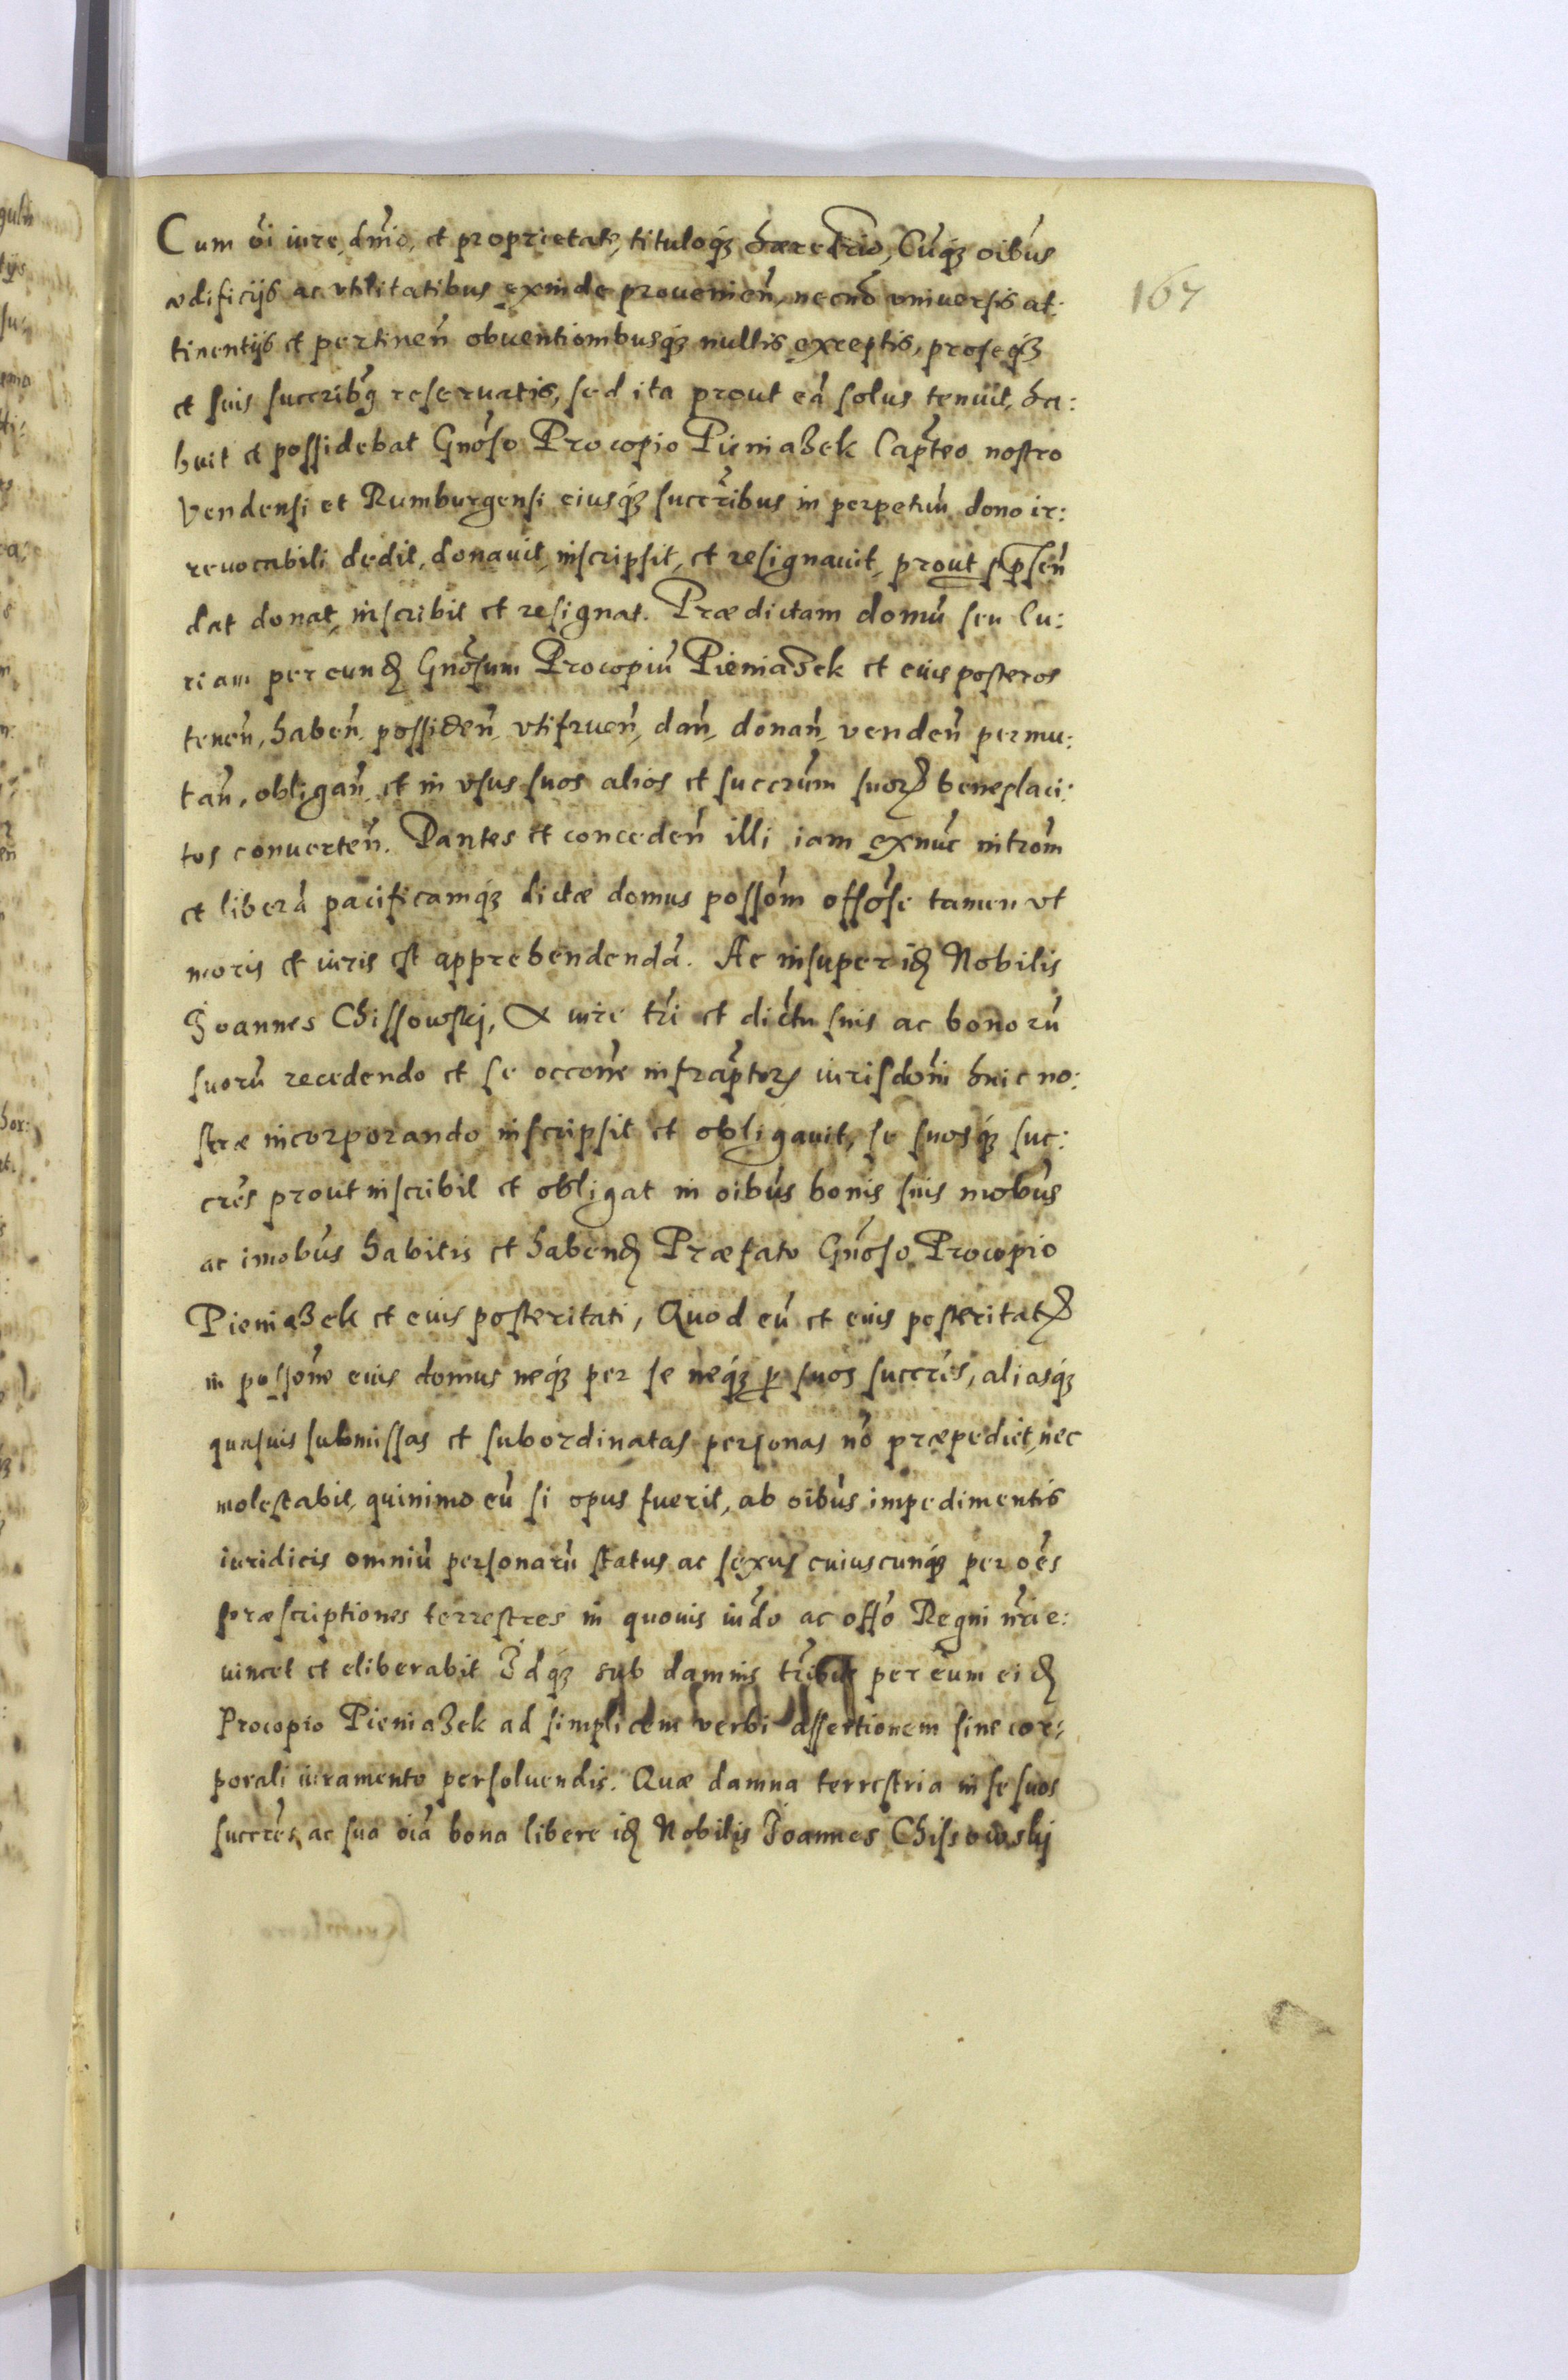 Cum oi iure, dnio, et proprietate, tituloq3 hæredrio, Cuq3 oibus
ædificijs ac vtilitatibus exinde prouenien, necno vniuersis at:
167
tinentijs et pertinen obuentionibusq3 nullis exceptis, proseq3
et suis succribq reseruatis, sed ita prout ea solus tenuit, ha:
buit et possidebat Gnoso Procopio Pieniazek Capteo nostro
Vendensi et Rumburgensi eiusq3 succribus in perpetuu dono ir:
reuocabili dedit, donauit, inscripsit, et resignauit, prout
dat donat, inscribit et resignat. Prædictam domu seu Cu:
riam per eund Gnosum Procopiu Pieniazek et eius posteros
tenen, haben, possiden, vtifruen, dan, donan, venden permu:
tan, obligan et in vsus suos alios et succrum suor beneplaci:
tos conuerten. Dantes et conceden illi iam exnuc introm
et libera pacificamq3 dictæ domus possom offose tamen vt
moris et iuris est apprehendenda. Ac insuper id Nobilis
Joannes Chissowskj, A iure tri et dictu suis ac bonoru
suoru recedendo et se occone infraptor iurisdoni huic no:
stræ incorporando inscripsit et obligauit, se suosq3 suc:
cres prout inscribit et obligat in oibus bonis suis mobus
ac imobus habitis et habend Præfato Gnoso Procopio
Pieniazek et eius posteritati, Quod eu et eius posteritat
in possone eius domus neq3 per se neq3 p suos succres, aliasq3
quasuis submissas et subordinatas personas no præpediet, nec
molestabit, quinimo eu si opus fuerit, ab oibus impedimentis
iuridicis omniu personaru status ac sexus cuiuscunq3 per oes
præscriptiones terrestres in quouis iudo ac offo Regni nri e:
uincet et eliberabit Jdq3 sub damnis tribus per eum eid
Procopio Pieniazek ad simplicem verbi assertionem sine cor:
porali iuramento persoluendis. Quæ damna terrestria in se suos
succres, ac sua oia bona libere id Nobilis Joannes Chissowskj